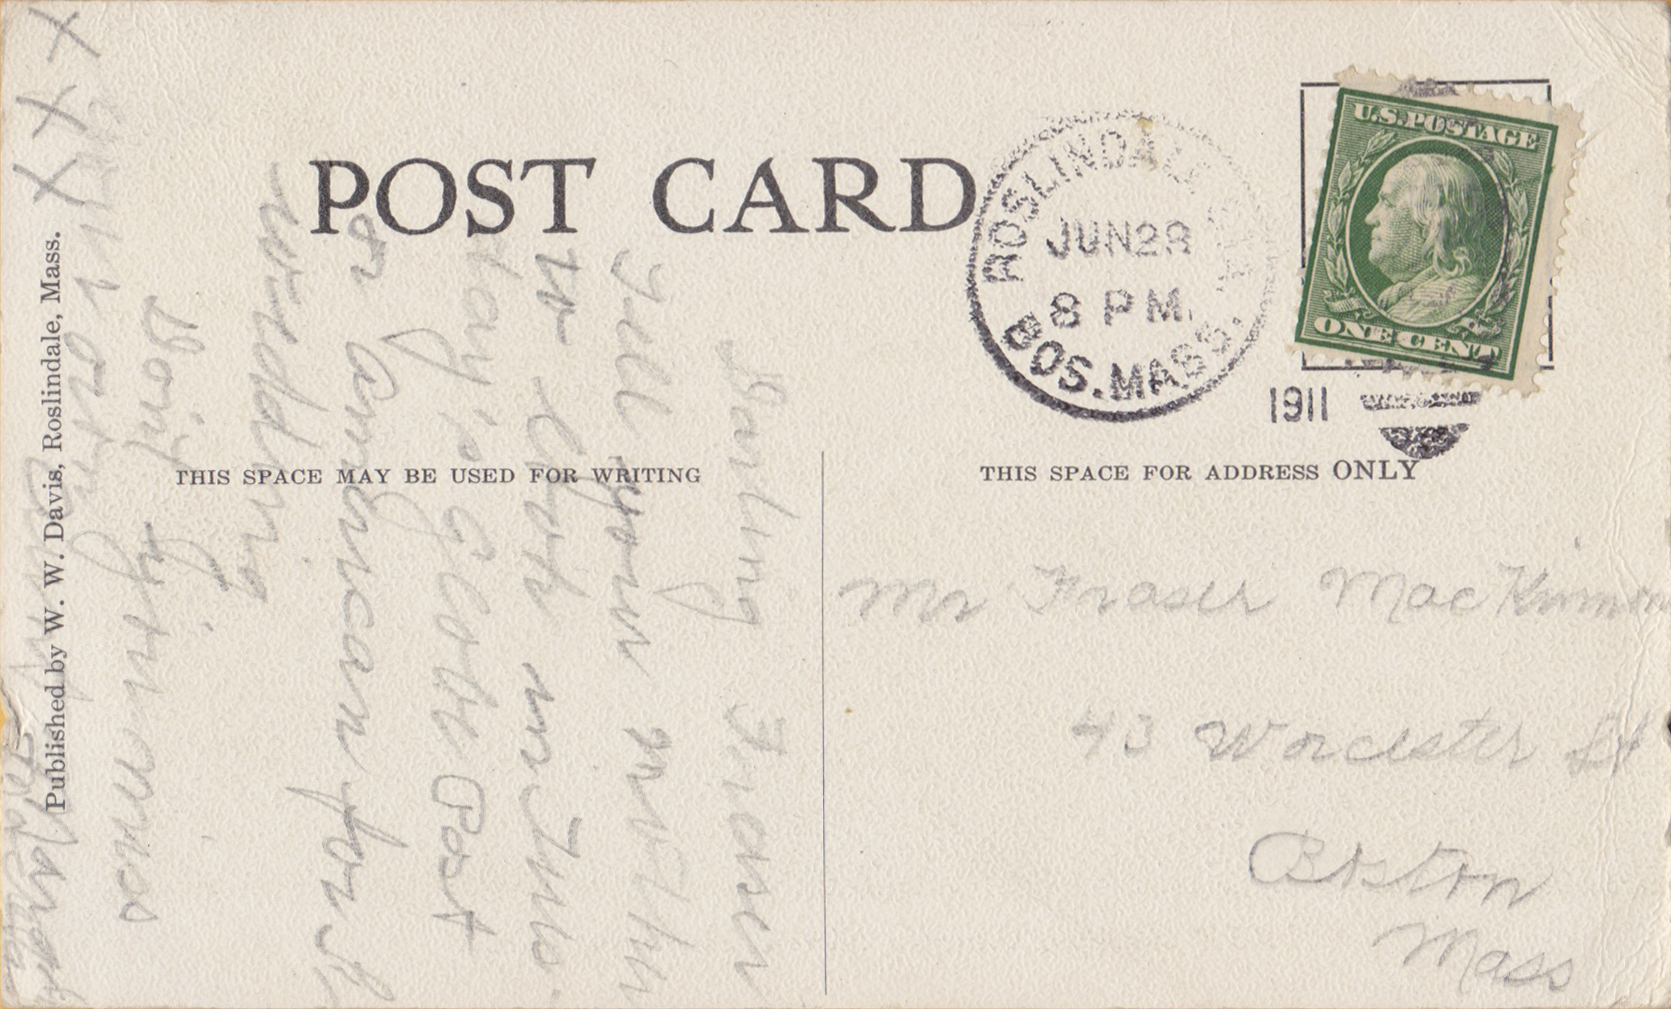 POST CARD
ROSLINDALE STA.
JUN 28
8 PM
BOS. MASS.
1911
U.S. POSTAGE
ONE CENT
THIS SPACE MAY BE USED FOR WRITING
THIS SPACE FOR ADDRESS ONLY
Mr Fraser MacKinnon
43 Worcester St
Boston
Mass
Darling Fraser
Tell your mother
to look in Tues.
day's Globe Post
or American for
wedding
some thing
Doing
X X X
Published by W. W. Davis, Roslindale, Mass.